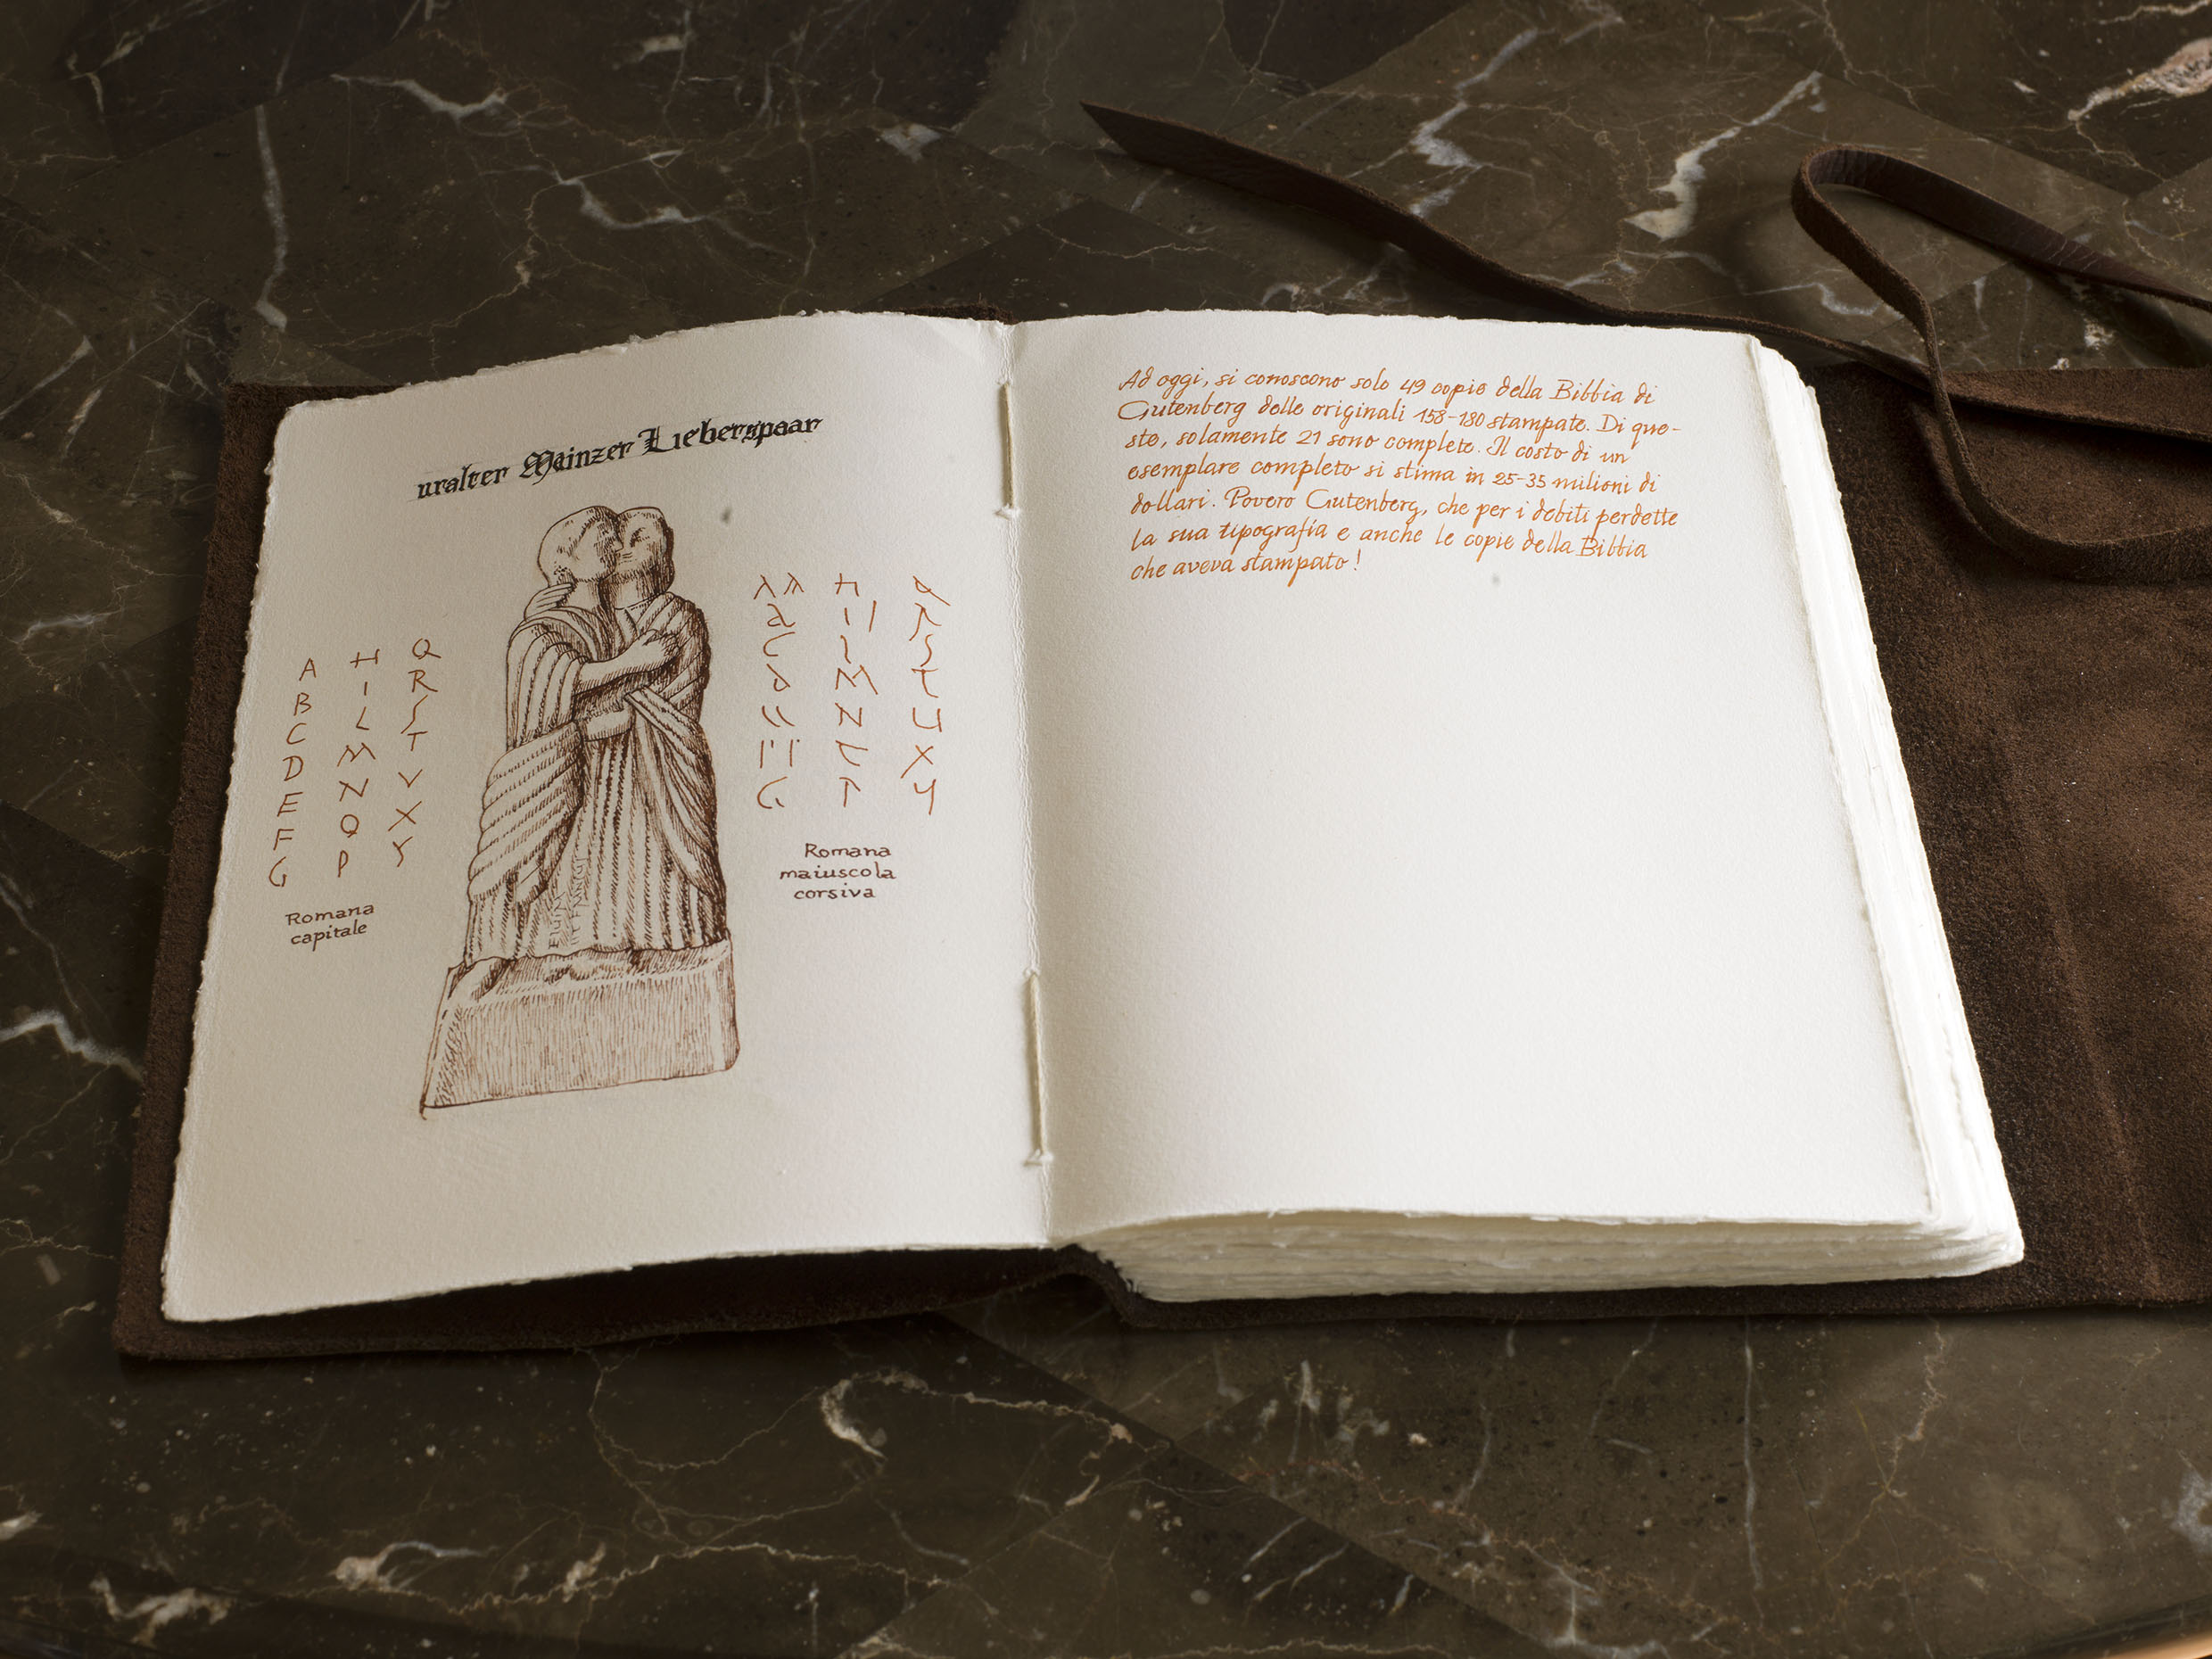 uralter Mainzer Lieberspaar
A H Q
B I R
C L S
D M T
E N V
F O X
G P Y
Romana
capitale
H
I
C I S
M T
N U
X
G
Romana
maiuscola
corsiva
Ad oggi, si conoscono solo 49 copie della Bibbia di
Gutenberg delle originali 158-180 stampate. Di que-
ste, solamente 21 sono complete. Il costo di un
esemplare completo si stima in 25-35 milioni di
dollari. Povero Gutenberg, che per i debiti perdette
la sua tipografia e anche le copie della Bibbia
che aveva stampato!